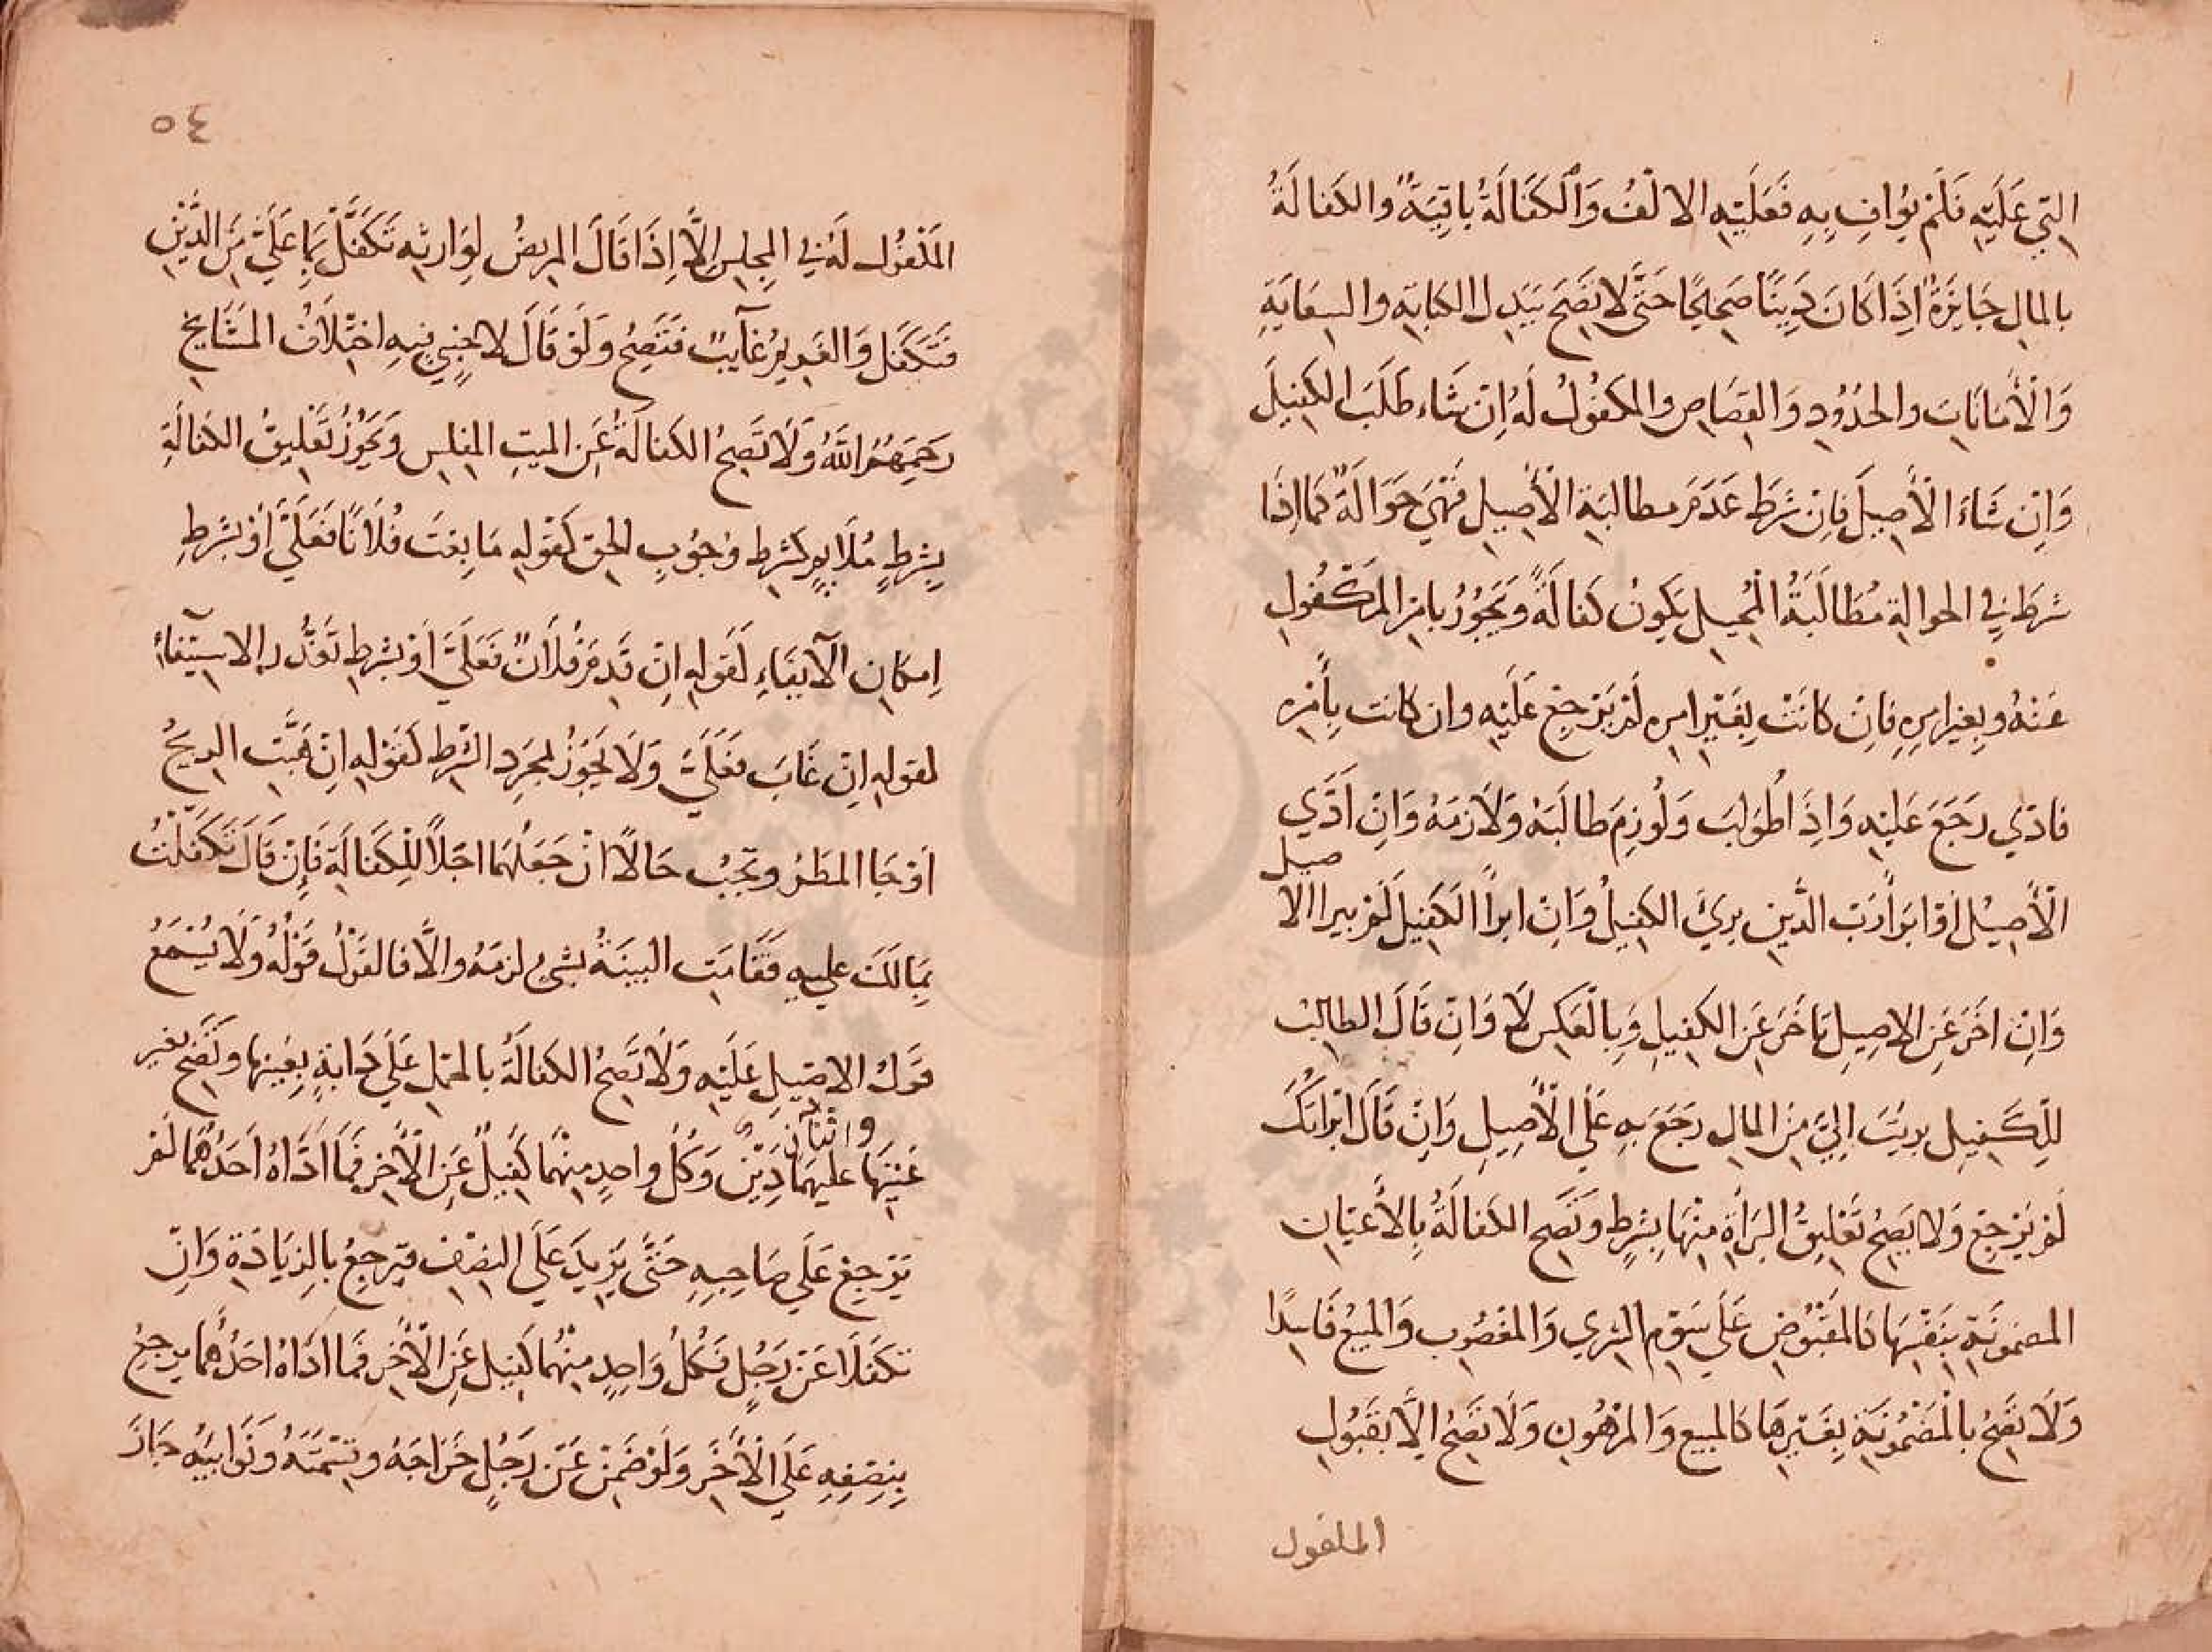 التي عَلَيْهِ فَلَمْ يُوافِ بِهِ فَعَلَيْهِ الالْفُ وَالكَفَالَةُ باقِيَةٌ والكفالَةُ
بالمالِ جَايزَةٌ اِذَا كانَ دَيْنًا صَحِيْحًا حَتَّى لا تَصِحَ بِبَدِلِ الكتابةِ والسِعَايَةِ
وَالأَمَانَاتِ والحدُوْدِ وَالقِصَاصِ والمكفُوْلُ لَهُ اِنْ شَاء طَلَبَ الكَفِيْلَ
وَاِنْ شَاءَ الأَصِيلَ فاِنْ شَرَطَ عَدَمَ مطالبَةِ الأَصِيلِ فَهِيَ حَوَالَةٌ كما اِذَا
شرَطَ في الحوالةِ مُطَالَبَةُ المُحيلِ يَكونُ كفالَةً وَيَجُوْزُ بامرِ المَكْفُولِ
عَنْهُ وبِغيرِ امرِهِ فاِنْ كانَتْ بِغَيْرِ امرِهِ لَمْ يَرْجِعْ عَلَيْهِ وان كانت بِأَمْرِهِ
فادّي رَجَعَ عَليْهِ وَاِذَا طُوْلِبَ وَلُوزِمَ طالَبَهُ وَلاَزمَهُ وَاِنْ اَدَّي
الأَصِيْلُ اَوْ ابرَأَ رَبُ الدَّينِ بريَ الكفِيلُ وَاِنْ ابرأَ الكَفِيلَ لَمْ يبرا الا
صيل
وَاِنْ اخّرَ عَنِ الاصِيلِ تاخّرَ عَنِ الكفِيلِ وَبِالْعَكسِ لا وَاِنْ قَالَ الطالبُ
لِلْكَفِيلِ بريْتَ اِليَّ مِنَ المالِ رجَعَ بهِ عَلَي الْأَصِيلِ وَاِنْ قَالَ ابْرَاتُكَ
لَمْ يَرْجِعْ وَلا يَصِحُ تَعْلِيْقُ البَرَأةِ مِنْهَا بِشرْطٍ وتَصِح الكفالَةُ بِالأَعْيَان
المضمونَةِ بِنَفْسِهَا كالمَقْبُوْضِ عَلَي سَوْمِ الشري وَالمغصُوبِ وَالمبيْعِ فَاسِدًا
وَلَا تصِحُ بالْمَضْمُوْنَةِ بِغَيْرِهَا كالمبيعِ وَالمَرْهُونِ وَلَا تصِحُ اِلَّا بقَبُولِ
الملفول
٥٤
المَلْفُول لَهُ فِي المجلِسِ اِلَّا اِذَا قَالَ المريضُ لِوَارثِهِ تَكَفَّلْ بِمَا عَلَيَّ مِنَ الدَّيْنِ
فَتَكَفّلَ وَالغَرِيمُ غآيبٌ فَتَصِحُ وَلَوْ قَالَ لاجْنبيٍ فِيهِ اخْتِلَافُ المشَايخِ
رَحِمَهُمُ اللّهُ وَلَا تَصِحُ الكفالَةُ عَنِ الميتِ المفلسِ وَيجُوزُ تَعْلِيقُ الكفالَةِ
بِشرْطٍ مُلَايمٍ كشرطِ وُجُوْبِ الحقِ كقوْلِهِ مَا بِعْتَ فُلَانًا فَعَلَيَّ اَوْ بشرْطِ
اِمكانِ الآيفَاءِ كَقولِهِ اِنْ قَدِمَ فُلَانٌ فَعَلَيَّ اَوْ بشرطِ تَعَذُّرِ الاسْتيفَاءِ
كقولهِ اِنْ غَابَ فعَلَيَّ وَلَا يَجُوزُ بمجرَدِ الشَّرطِ كَقَوْلهِ اِنْ هَبَّتِ الريْحُ
اَوْ جَا المطَرُ وتجِبُ حَالاً انْ جَعَلَهُمَا اجَلًا لِلْكَفالَةِ فَاِنْ قَالَ تَكَفّلْتُ
بِمَا لَكَ عليهِ فَقَامَتِ البينَةُ بشيءٍ لزمَهُ والّا فالقَوْلُ قَوْلُهُ وَلَا يُسْمَعُ
قَوْلُ الاصِيلِ عَلَيْهِ وَلَا تَصِحُ الكفالَةُ بالحملِ عَلَي دَابةٍ بِعَيْنِهَا وتصِحُ بغير
عَيْنِهَا واثنان عليهمَا دَيْنٌ وَكُلُ واحدٍ مِنْهُمَا كَفِيلٌ عَنِ الْأَخرِ فَمَا ادَّاهُ اَحَدُهُمَا لَمْ
يَرْجِعْ عَلَي صَاحِبِهِ حَتَّى يَزِيدَ عَلَي النِصْفِ فيَرجِعُ بالزِيَادَةِ وَاِنْ
تكفَلَا عَنْ رَجُلٍ فَكُلُ وَاحِدٍ مِنْهُمَا كَفِيل عَنِ الْأَخَرِ فَمَا ادَاهُ احَدُهُمَا يرجِعُ
بِنِصْفِهِ عَلَي الْأَخَرِ وَلَوْ ضَمِنَ عَنْ رَجُلٍ خَرَاجَهُ وقِسْمَتَهُ وَنَوَايبَهُ جَازَ